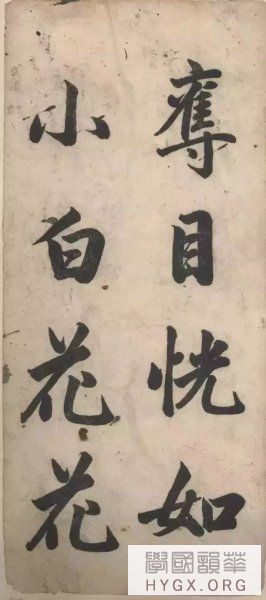 奪目恍如
小白花花
華韻國學
HYGX.ORG